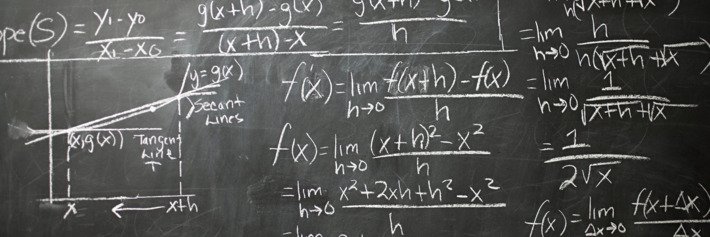 ope(S) = (y₁-y₀)/(x₁-x₀) = (g(x+h)-g(x))/((x+h)-x) = g(x+h)-g(x)/h
y=g(x)
Secant
Lines
(x,g(x))
Tangent
Line
T
x ← x+h
f(x) = lim h→0 (f(x+h)-f(x))/h
f(x) = lim h→0 ((x+h)²-x²)/h
= lim h→0 (x²+2xh+h²-x²)/h
= lim
h(√x+h+√x
= lim h→0 h/(h(√x+h+√x
= lim h→0 1/(√x+h+√x
= 1/(2√x)
f(x) = lim Δx→0 f(x+Δx)/Δx